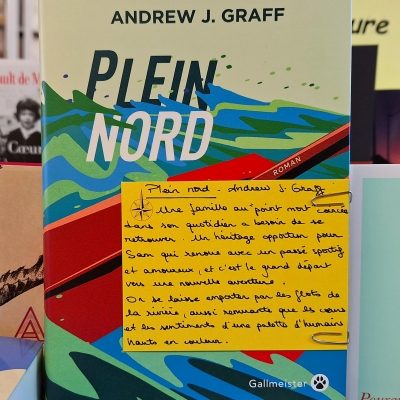 ANDREW J. GRAFF
PLEIN
NORD
ROMAN
Plein nord - Andrew J. Graff
Une famille au point mort coincée
dans son quotidien a besoin de se
retrouver. Un héritage opportun pour
Sam qui renoue avec un passé sportif
et amoureux, et c'est le grand départ
vers une nouvelle aventure.
On se laisse emporter par les flots de
la rivière, aussi remuante que les cœurs
et les sentiments d'une palette d'humains
hauts en couleur.
Gallmeister
ault de M
Cœur
ure
A